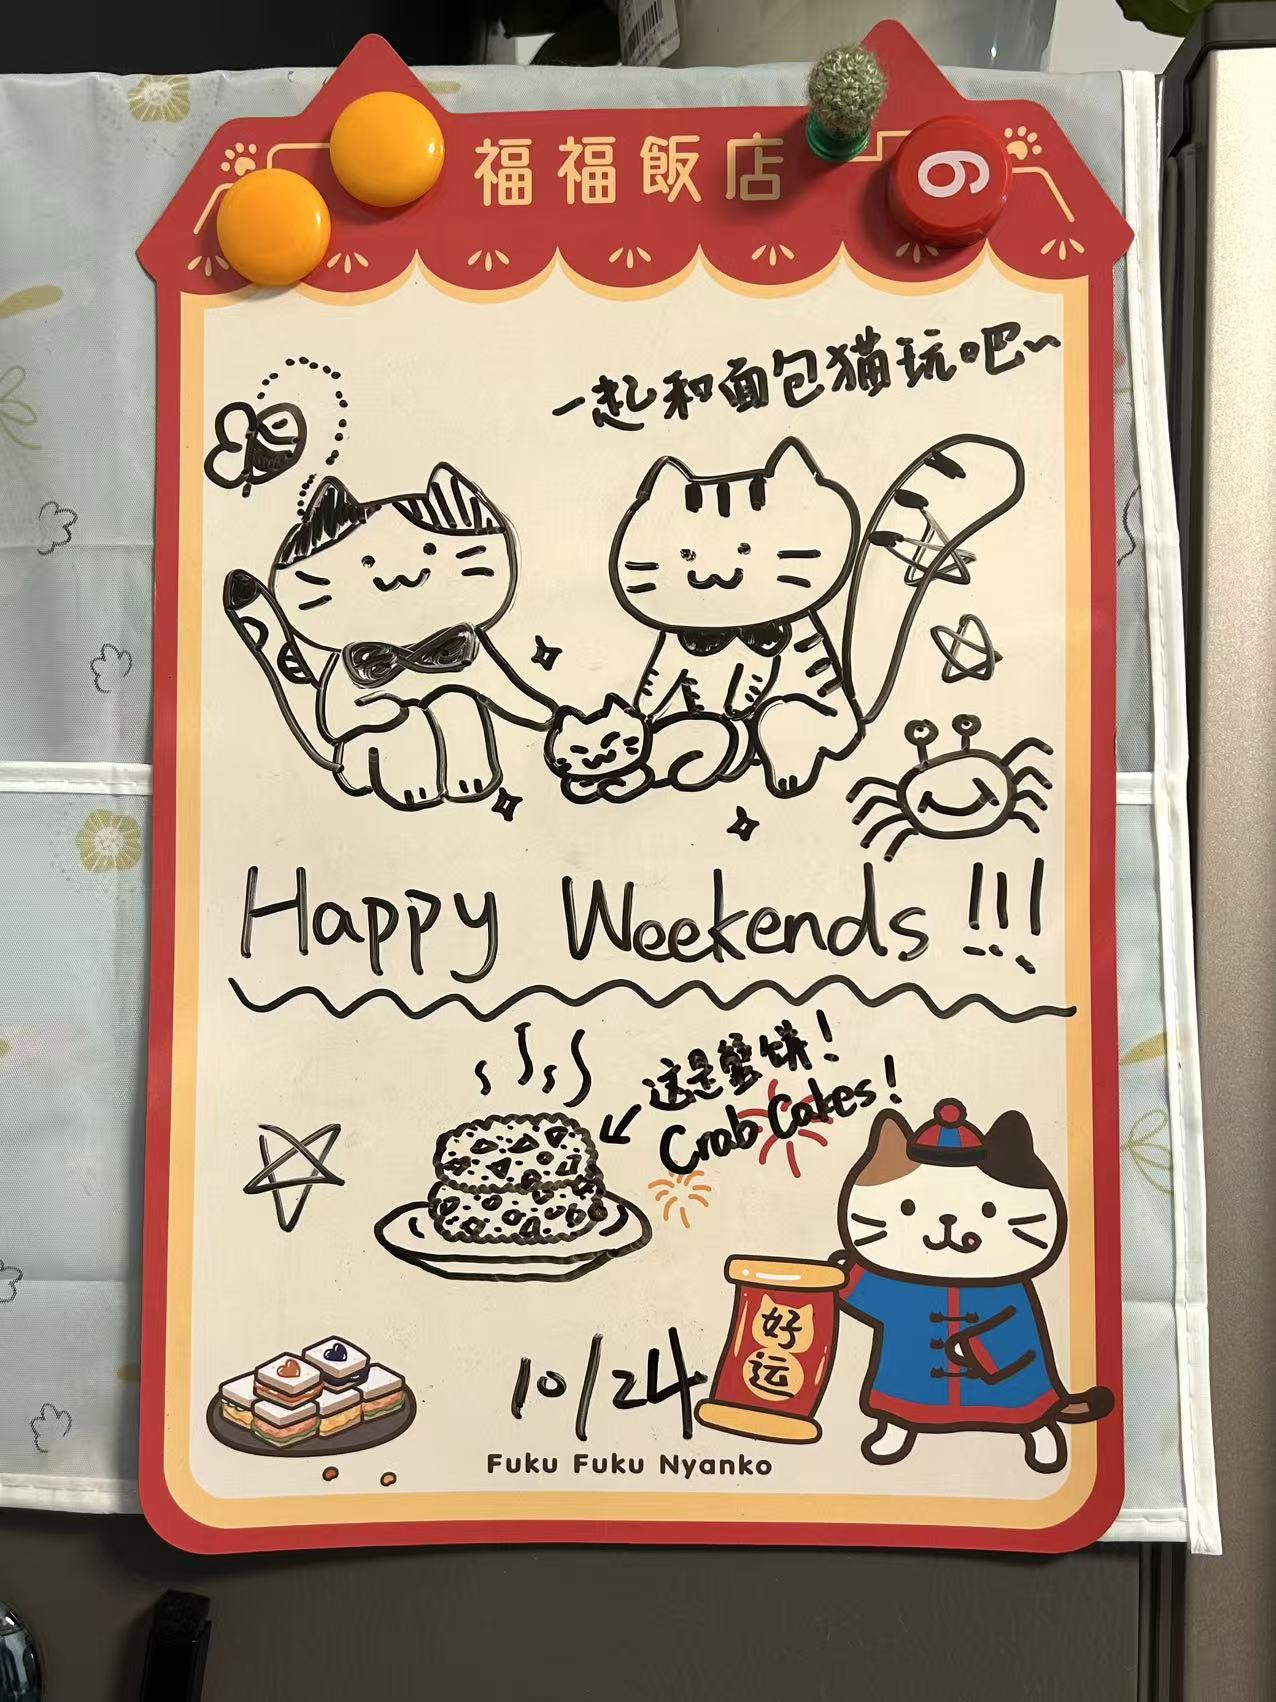 福福飯店
6
一起和面包猫玩吧~
Happy Weekends!!!
这是蟹饼!
Crab Cakes!
好运
10/24
Fuku Fuku Nyanko